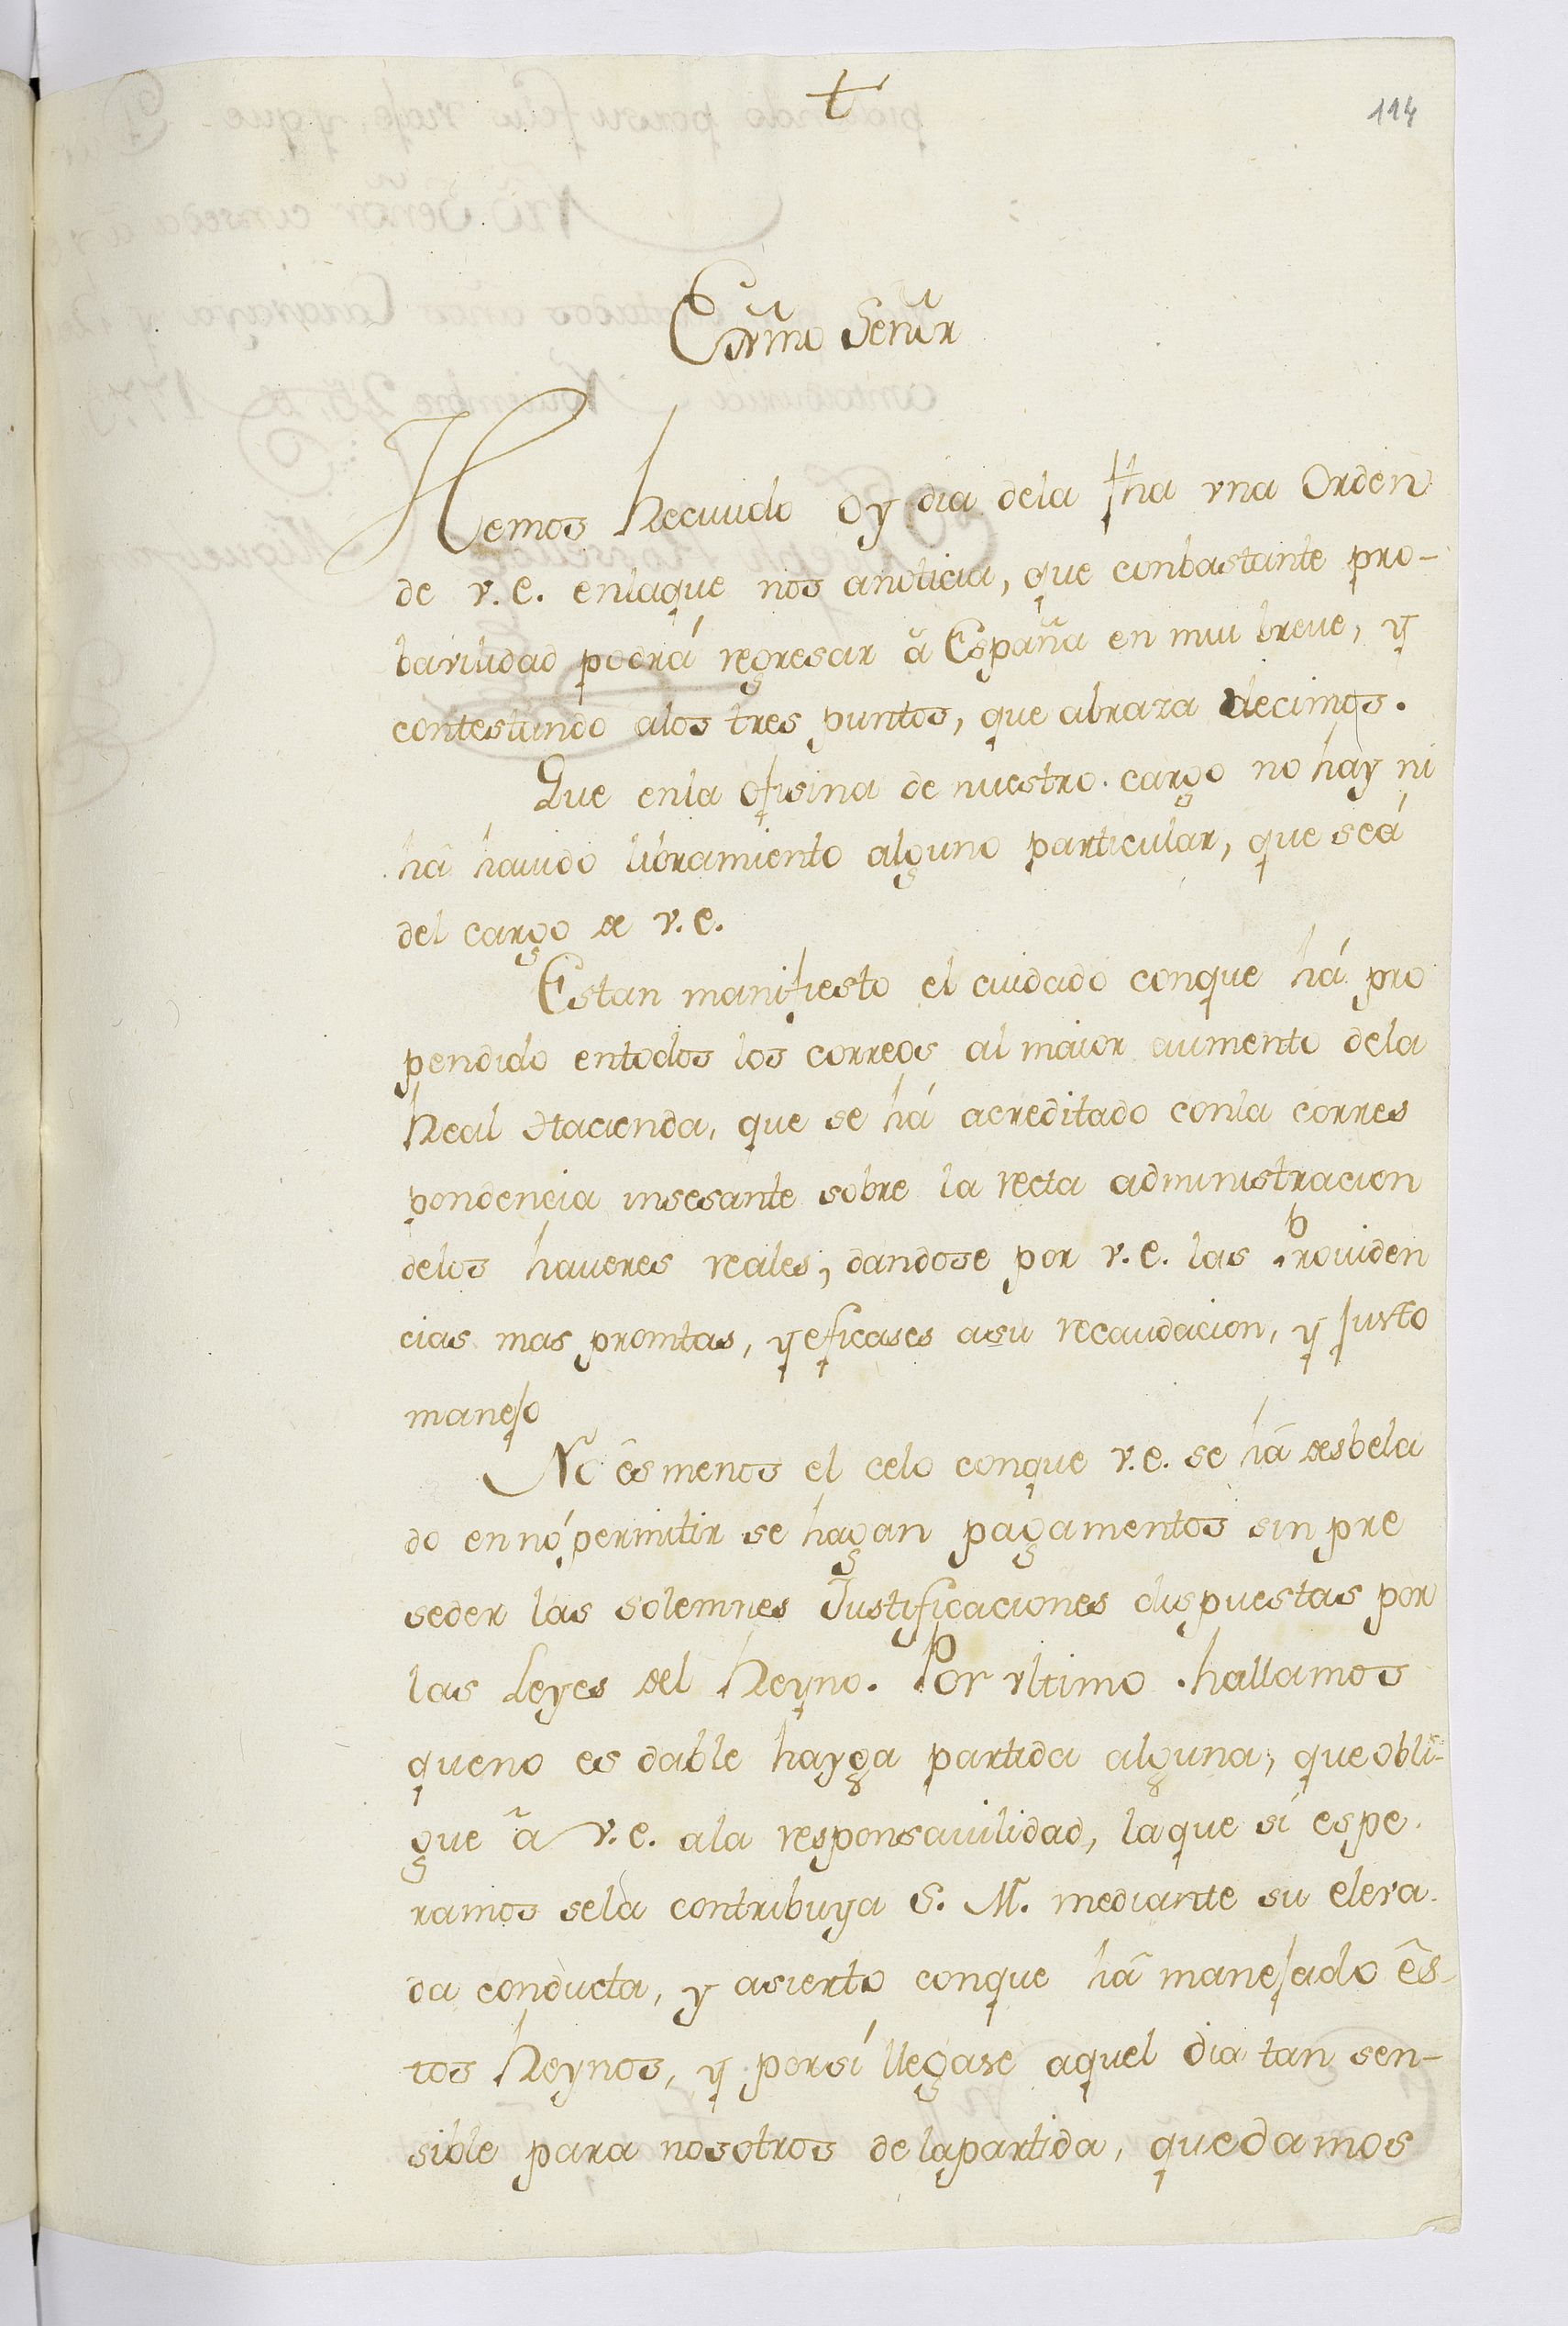 †
114
Exmo Señor
Hemos Recivido oy dia dela fha vna Orden
de v.e. enlaque nos anoticia, que conbastante pro-
baviludad podrá regresar ã España en mui breue, y
contestando alos tres puntos, que abraza decimos.
Que enla ofisina de nuestro cargo no hay ni
hã hauido libramiento alguno particular, que seá
del cargo de v.e.
Estan manifiesto el cuidado conque há pro
pendido entodos los correos al maior aumento dela
Real Hacienda, que se há acreditado conla corres
pondencia insesante sobre la recta administracion
delos haueres reales, dandose por v.e. las Prouiden
cias mas promtas, y eficases asu recaudacion, y justo
manejo
No ẽs menos el celo conque v.e. se hã desbela
do en nó permitir se hagan pagamentos sin pre
seder las solemnes Justificaciones dispuestas por
las Leyes del Reyno. Por vltimo hallamos
queno es dable hayga partida alguna, que obli-
gue ã v.e. ala responsauilidad, laque sí espe
ramos sela contribuya S. M. mediante su eleva
da conducta, y asierto conque hã manejado ẽs
tos Reynos, y porsí llegase aquel dia tan sen-
sible para nosotros de lapartida, quedamos